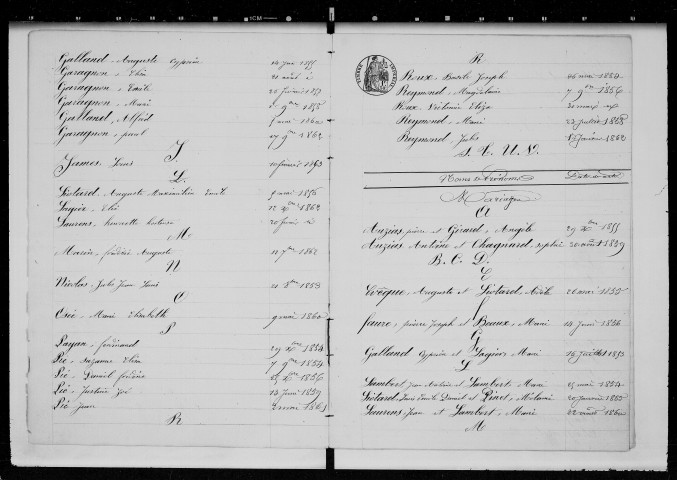 Galland, Auguste Cyprien 14 Juin 1855
Garagnon, Elisa 21 août
Garagnon, Emile 20 février 1857
Garagnon, Marie 9bre 1858
Galland, Alfred 1860
Garagnon, paul 27 9bre 1862
J
James, Louis 10 février 1853
L
Liotard, Auguste Maximilien Emile mai 1853
Lagier, Elie 22 Xbre 1862
Laurens, henriette 20 février
M
Marin, frédéric Auguste 12 7bre 1862
N
Nicolas, Jules Jean Louis 21 8bre 1853
O
Osié, Marie Elisabeth 9 mai 1860
P
Payan, ferdinand 29 Xbre 1854
Pié, Suzanne Elisa 7 9bre 1854
Pié, Daniel frédéric Xbre 1856
Pié, Justine Zoé 13 Juin 1859
Pié, Jean 2 mai 1861
R
R
Roux, Basile Joseph 26 mai 1854
Reymond, Magdeleine 7 9bre 1856
Roux, Victorine Eliza 20 mars
Reymond, Marie 22 Juillet 1858
Reymond, Jules 17 Janvier 1862
S. T. U. V.
Noms et Prénoms
Mariages
A
Auzias, pierre et Girard, Angèle 29 Xbre 1855
Auzias Antoine et Chagnard, sophie 30 août 1859
B. C. D.
E
Evêque, Auguste et Liotard, Adèle 20 mai 1853
f
faure, pierre Joseph et Beaux, Marie 14 Juin 1856
G
Galland Cyprien et Lagier, Marie 16 Juillet 1853
L
Lambert Jean Antoine et Lambert, Marie 25 mai 1854
Liotard, Louis Emile Daniel et Pinet, Mélanie 20 Janvier
Laurens, Jean et Lambert, Marie 22 août 1860
M